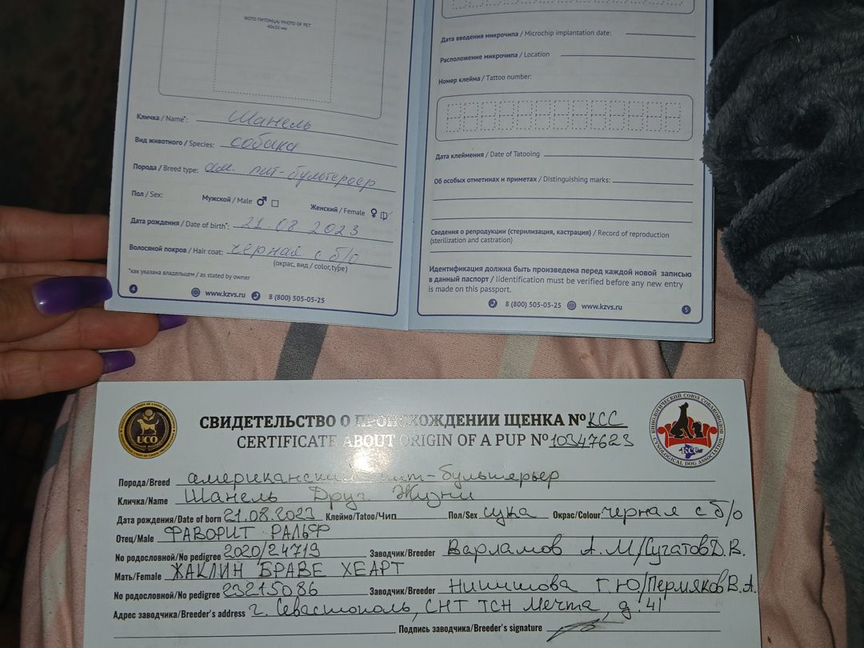 ФОТО ПИТОМЦА/ PHOTO OF PET
Кличка / Name*: Шанель
Вид животного / Species: собака
Порода / Breed type: ам. пит-бультерьер
Пол / Sex: Мужской / Male ♂ Женский / Female ♀
Дата рождения / Date of birth*: 21.08 2023
Волосяной покров / Hair coat: черная с б/о
(окрас, вид / color,type)
*как указана владельцем / as stated by owner
4 www.kzvs.ru 8 (800) 505-05-25
Дата введения микрочипа / Microchip implantation date:
Расположение микрочипа / Location
Номер клейма / Tattoo number:
Дата клеймения / Date of Tatooing
Об особых отметинах и приметах / Distinguishing marks:
Сведения о репродукции (стерилизация, кастрация) / Record of reproduction
(sterilization and castration)
Идентификация должна быть произведена перед каждой новой записью
в данный паспорт / Iidentification must be verified before any new entry
is made on this passport.
8 (800) 505-05-25 www.kzvs.ru 5
UCO
СВИДЕТЕЛЬСТВО О ПРОИСХОЖДЕНИИ ЩЕНКА № КСС
CERTIFICATE ABOUT ORIGIN OF A PUP № 10347623
Порода/Breed американский пит-бультерьер
Кличка/Name Шанель Друг Жизни
Дата рождения/Date of born 21.08.2023 Клеймо/Tатоо/Чип Пол/Sex сука Окрас/Colour черная с б/о
Отец/Male ФАВОРИТ РАЛЬФ
No родословной/No pedigree 2020/24719 Заводчик/Breeder Варламов А.М/Сугатов Д.В.
Мать/Female ЖАКЛИН БРАВЕ ХЕАРТ
No родословной/No pedigree 23215086 Заводчик/Breeder Г.Ю/Пермяков В.А.
Адрес заводчика/Breeder's address г. Севастополь, СНТ ТСН Мечта, д. 41
Подпись заводчика/Breeder's signature